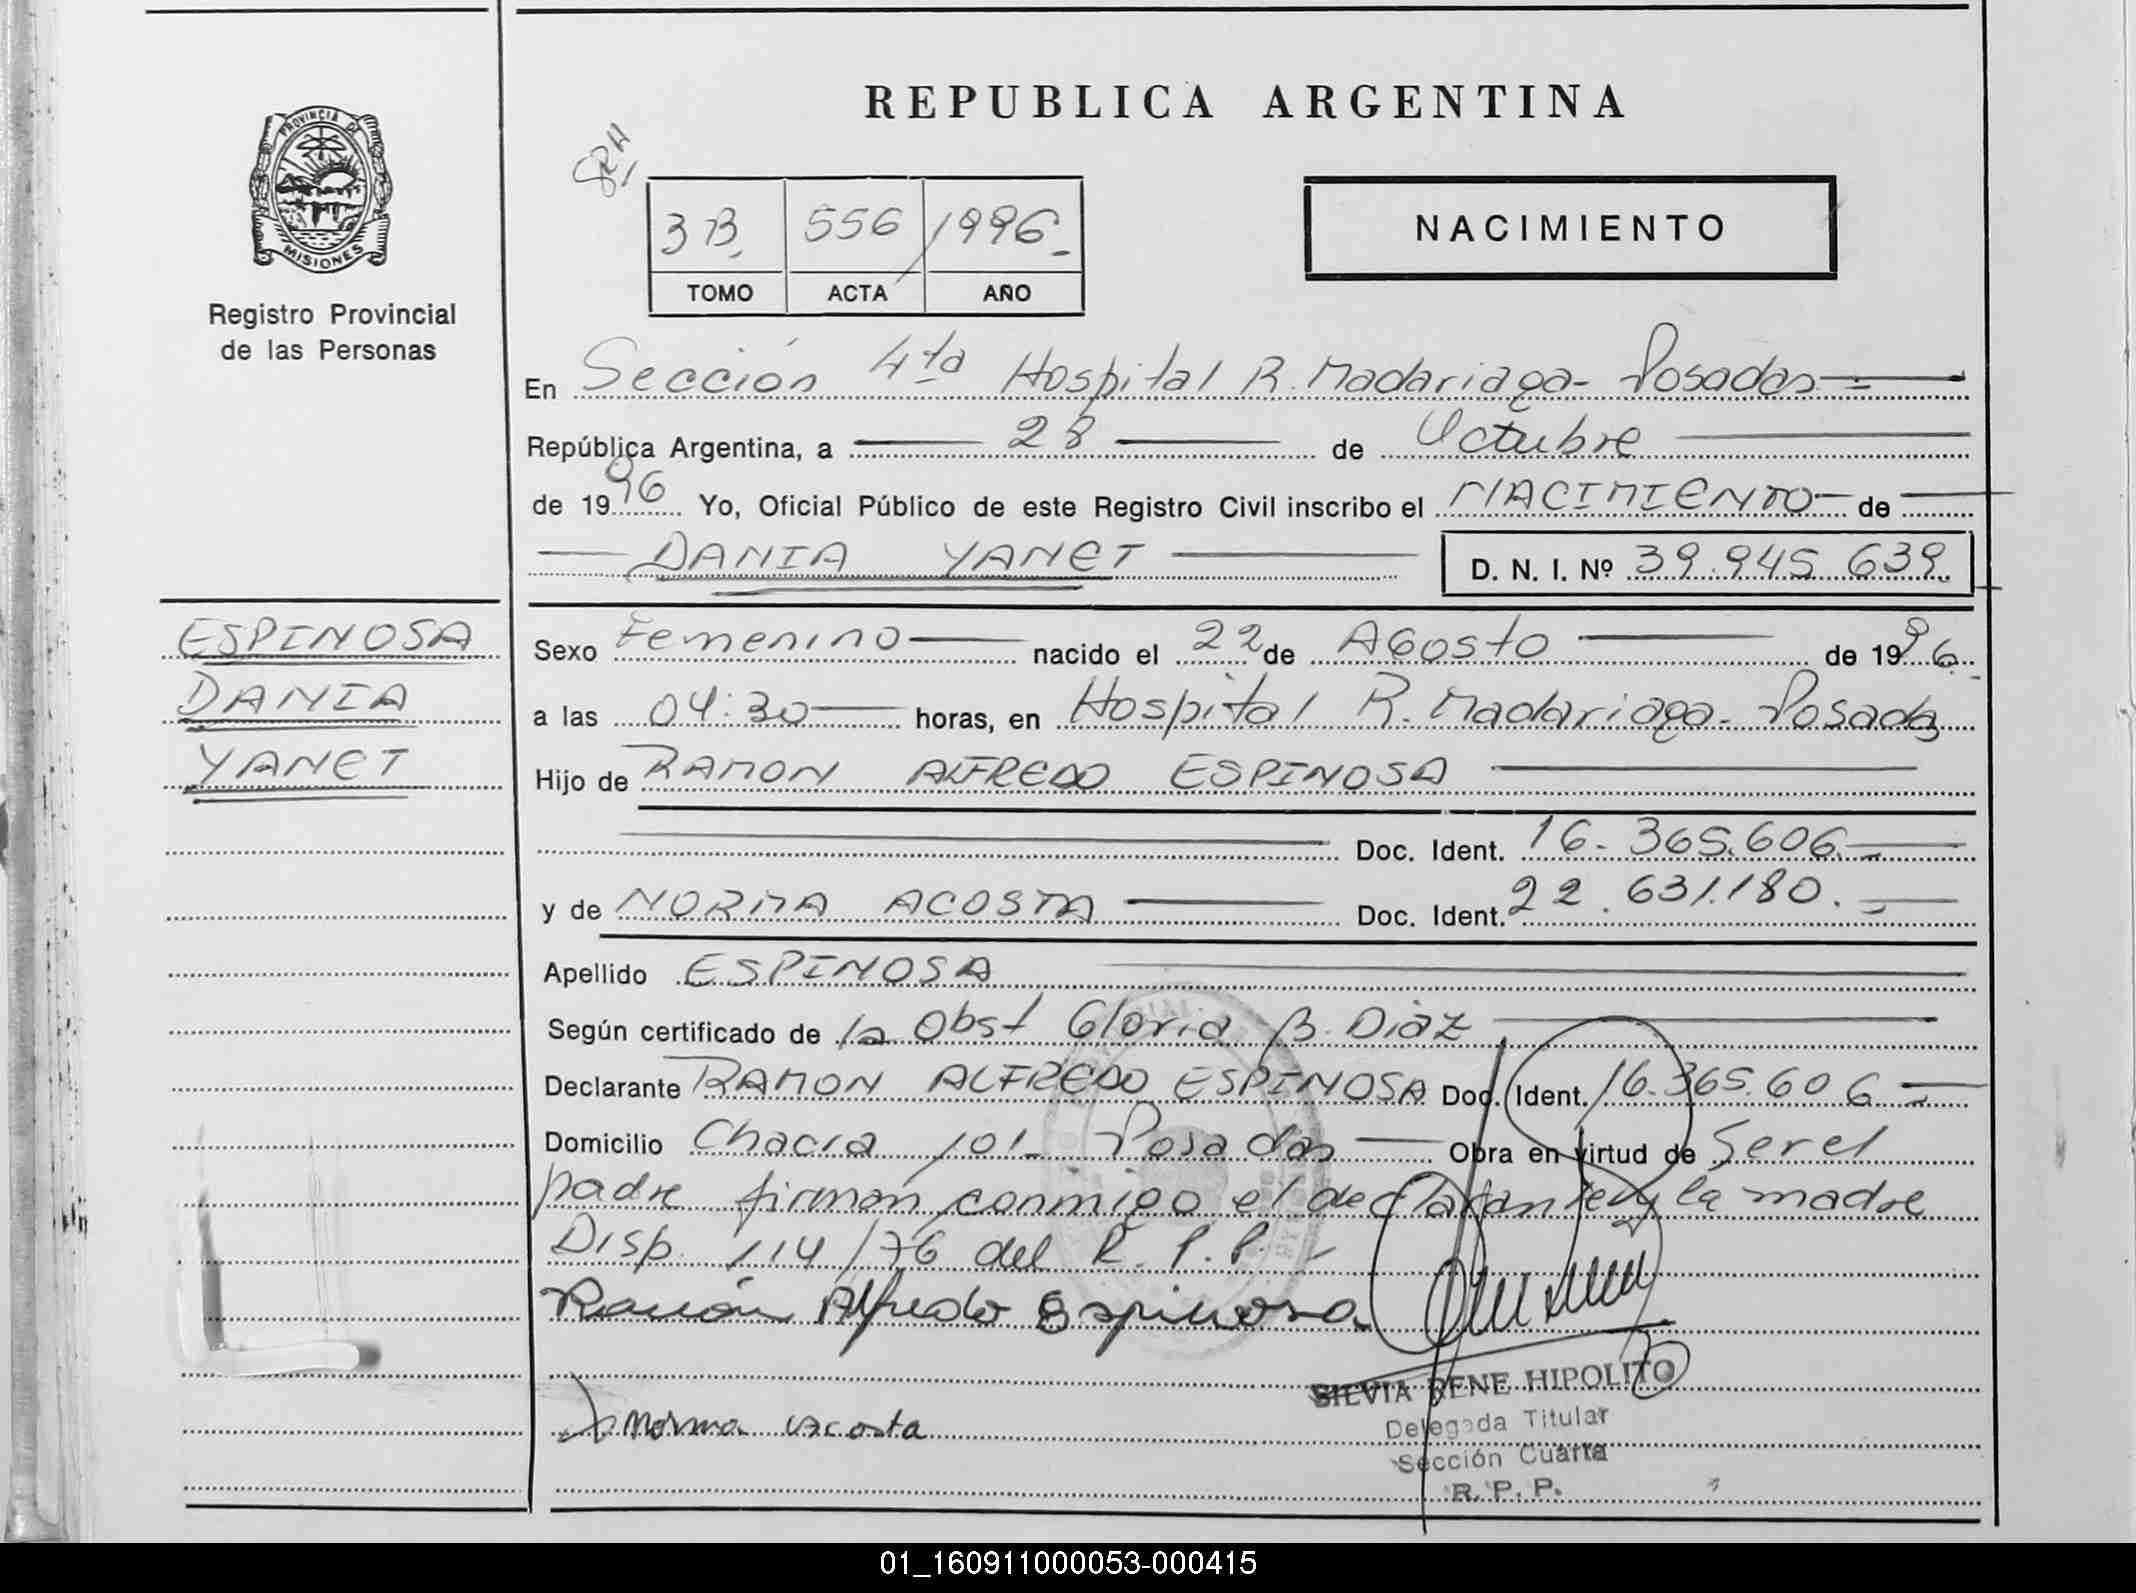 REPUBLICA ARGENTINA
PROVINCIA DE
MISIONES
Registro Provincial
de las Personas
SRH
3 B. 556 / 1996.-
TOMO ACTA AÑO
NACIMIENTO
En Sección 4ta Hospital R. Madariaga - Posadas
República Argentina, a 28 de Octubre
de 1996 Yo, Oficial Público de este Registro Civil inscribo el NACIMIENTO de
DANIA YANET D. N. I. Nº 39.945.639.
ESPINOSA
DANIA
YANET
Sexo Femenino nacido el 22 de Agosto de 1996.
a las 04:30 horas, en Hospital R. Madariaga - Posadas
Hijo de RAMON ALFREDO ESPINOSA
Doc. Ident. 16.365.606.-
y de NORMA ACOSTA Doc. Ident. 22.631.180.-
Apellido ESPINOSA
Según certificado de la Obst Gloria B. Diaz
Declarante RAMON ALFREDO ESPINOSA Doc. Ident. 16.365.606
Domicilio Chacra 101 - Posadas Obra en virtud de Ser el
padre firman conmigo el declarante y la madre
Disp. 114/76 del R. P. P. -
Ramón Alfredo Espinosa
SILVIA RENE HIPOLITO
Norma Acosta
Delegada Titular
Sección Cuarta
R. P. P.
01_160911000053-000415